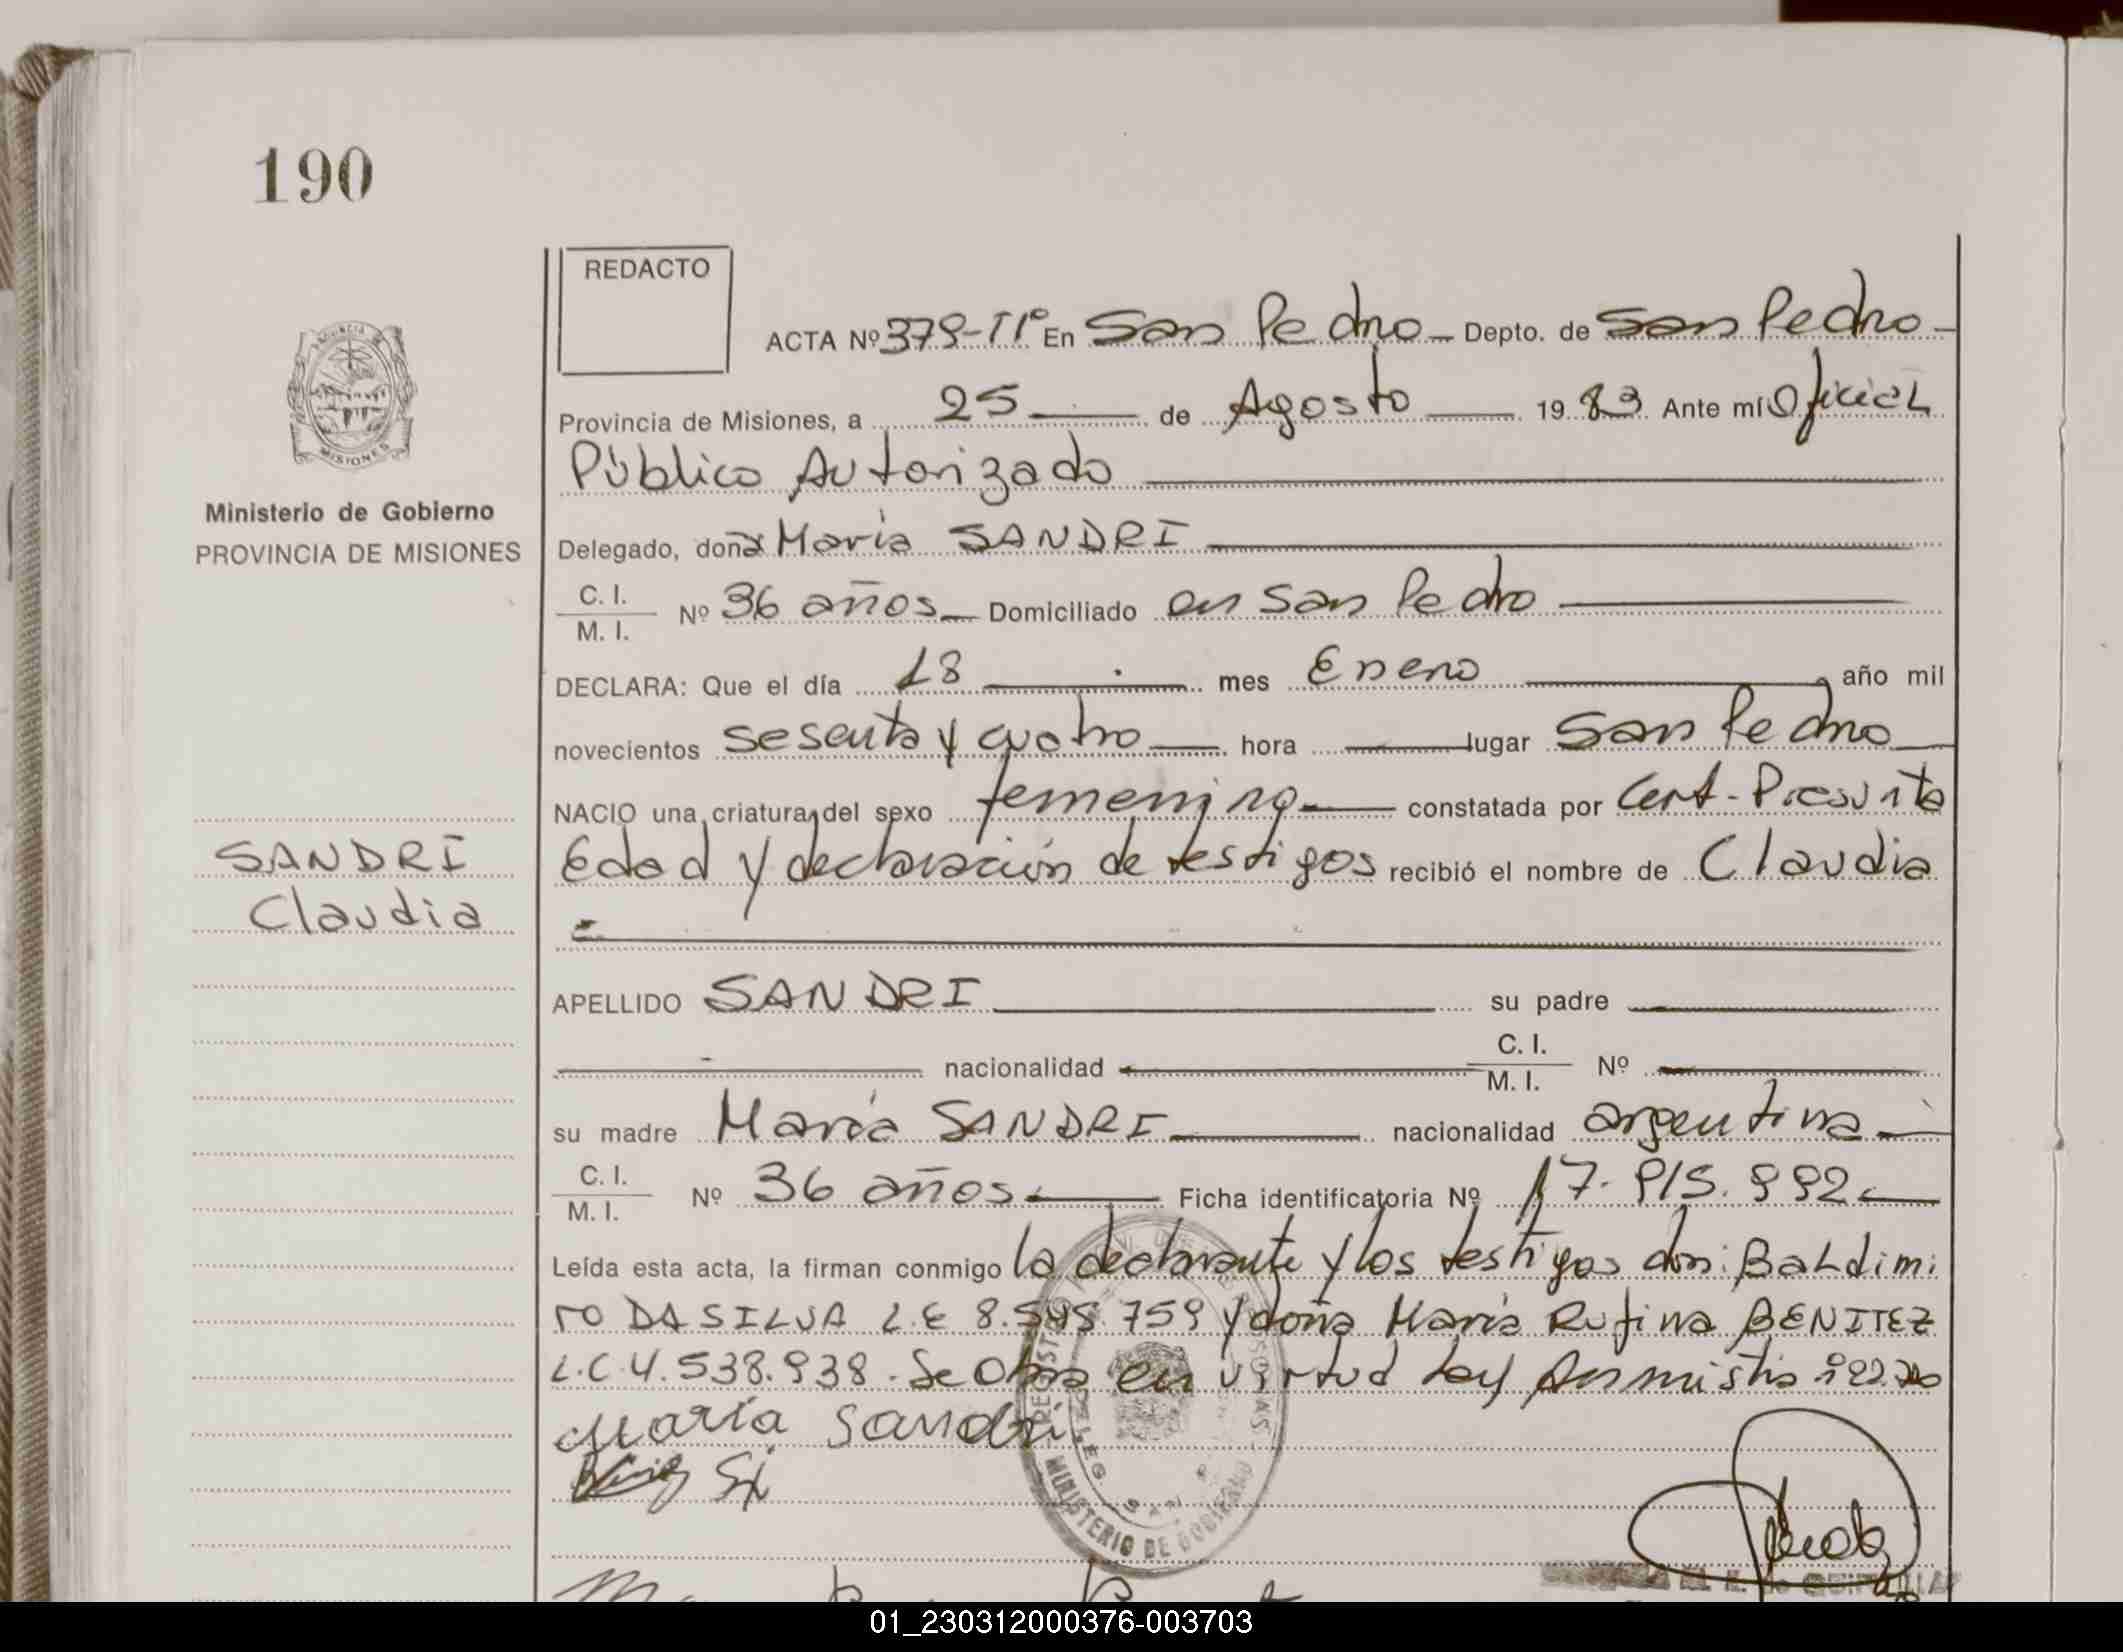 190
REDACTO
ACTA Nº 379-TIº En San Pedro Depto. de San Pedro
Provincia de Misiones, a 25 de Agosto 1983 Ante mí Oficial
Público Autorizado
Delegado, doña María SANDRI
C. I.
M. I. Nº 36 años Domiciliado en San Pedro
DECLARA: Que el día 18 mes Enero, año mil
novecientos sesenta y cuatro hora lugar San Pedro
NACIO una criatura del sexo femenino constatada por Cert. Presunta
Edad y declaración de testigos recibió el nombre de Claudia
APELLIDO SANDRI su padre
nacionalidad C. I.
M. I. Nº
su madre María SANDRI nacionalidad argentina
C. I.
M. I. Nº 36 años Ficha identificatoria Nº
Leída esta acta, la firman conmigo la declarante y los testigos don: Baldimi
ro DA SILVA L.E 8.545.759 y doña María Rufina BENITEZ
L.C 4.538.938. Se Obra en virtud Ley Amnistia
María Sandri
MISIONES
Ministerio de Gobierno
PROVINCIA DE MISIONES
SANDRI
Claudia
MINISTERIO DE GOBIERNO
01_230312000376-003703